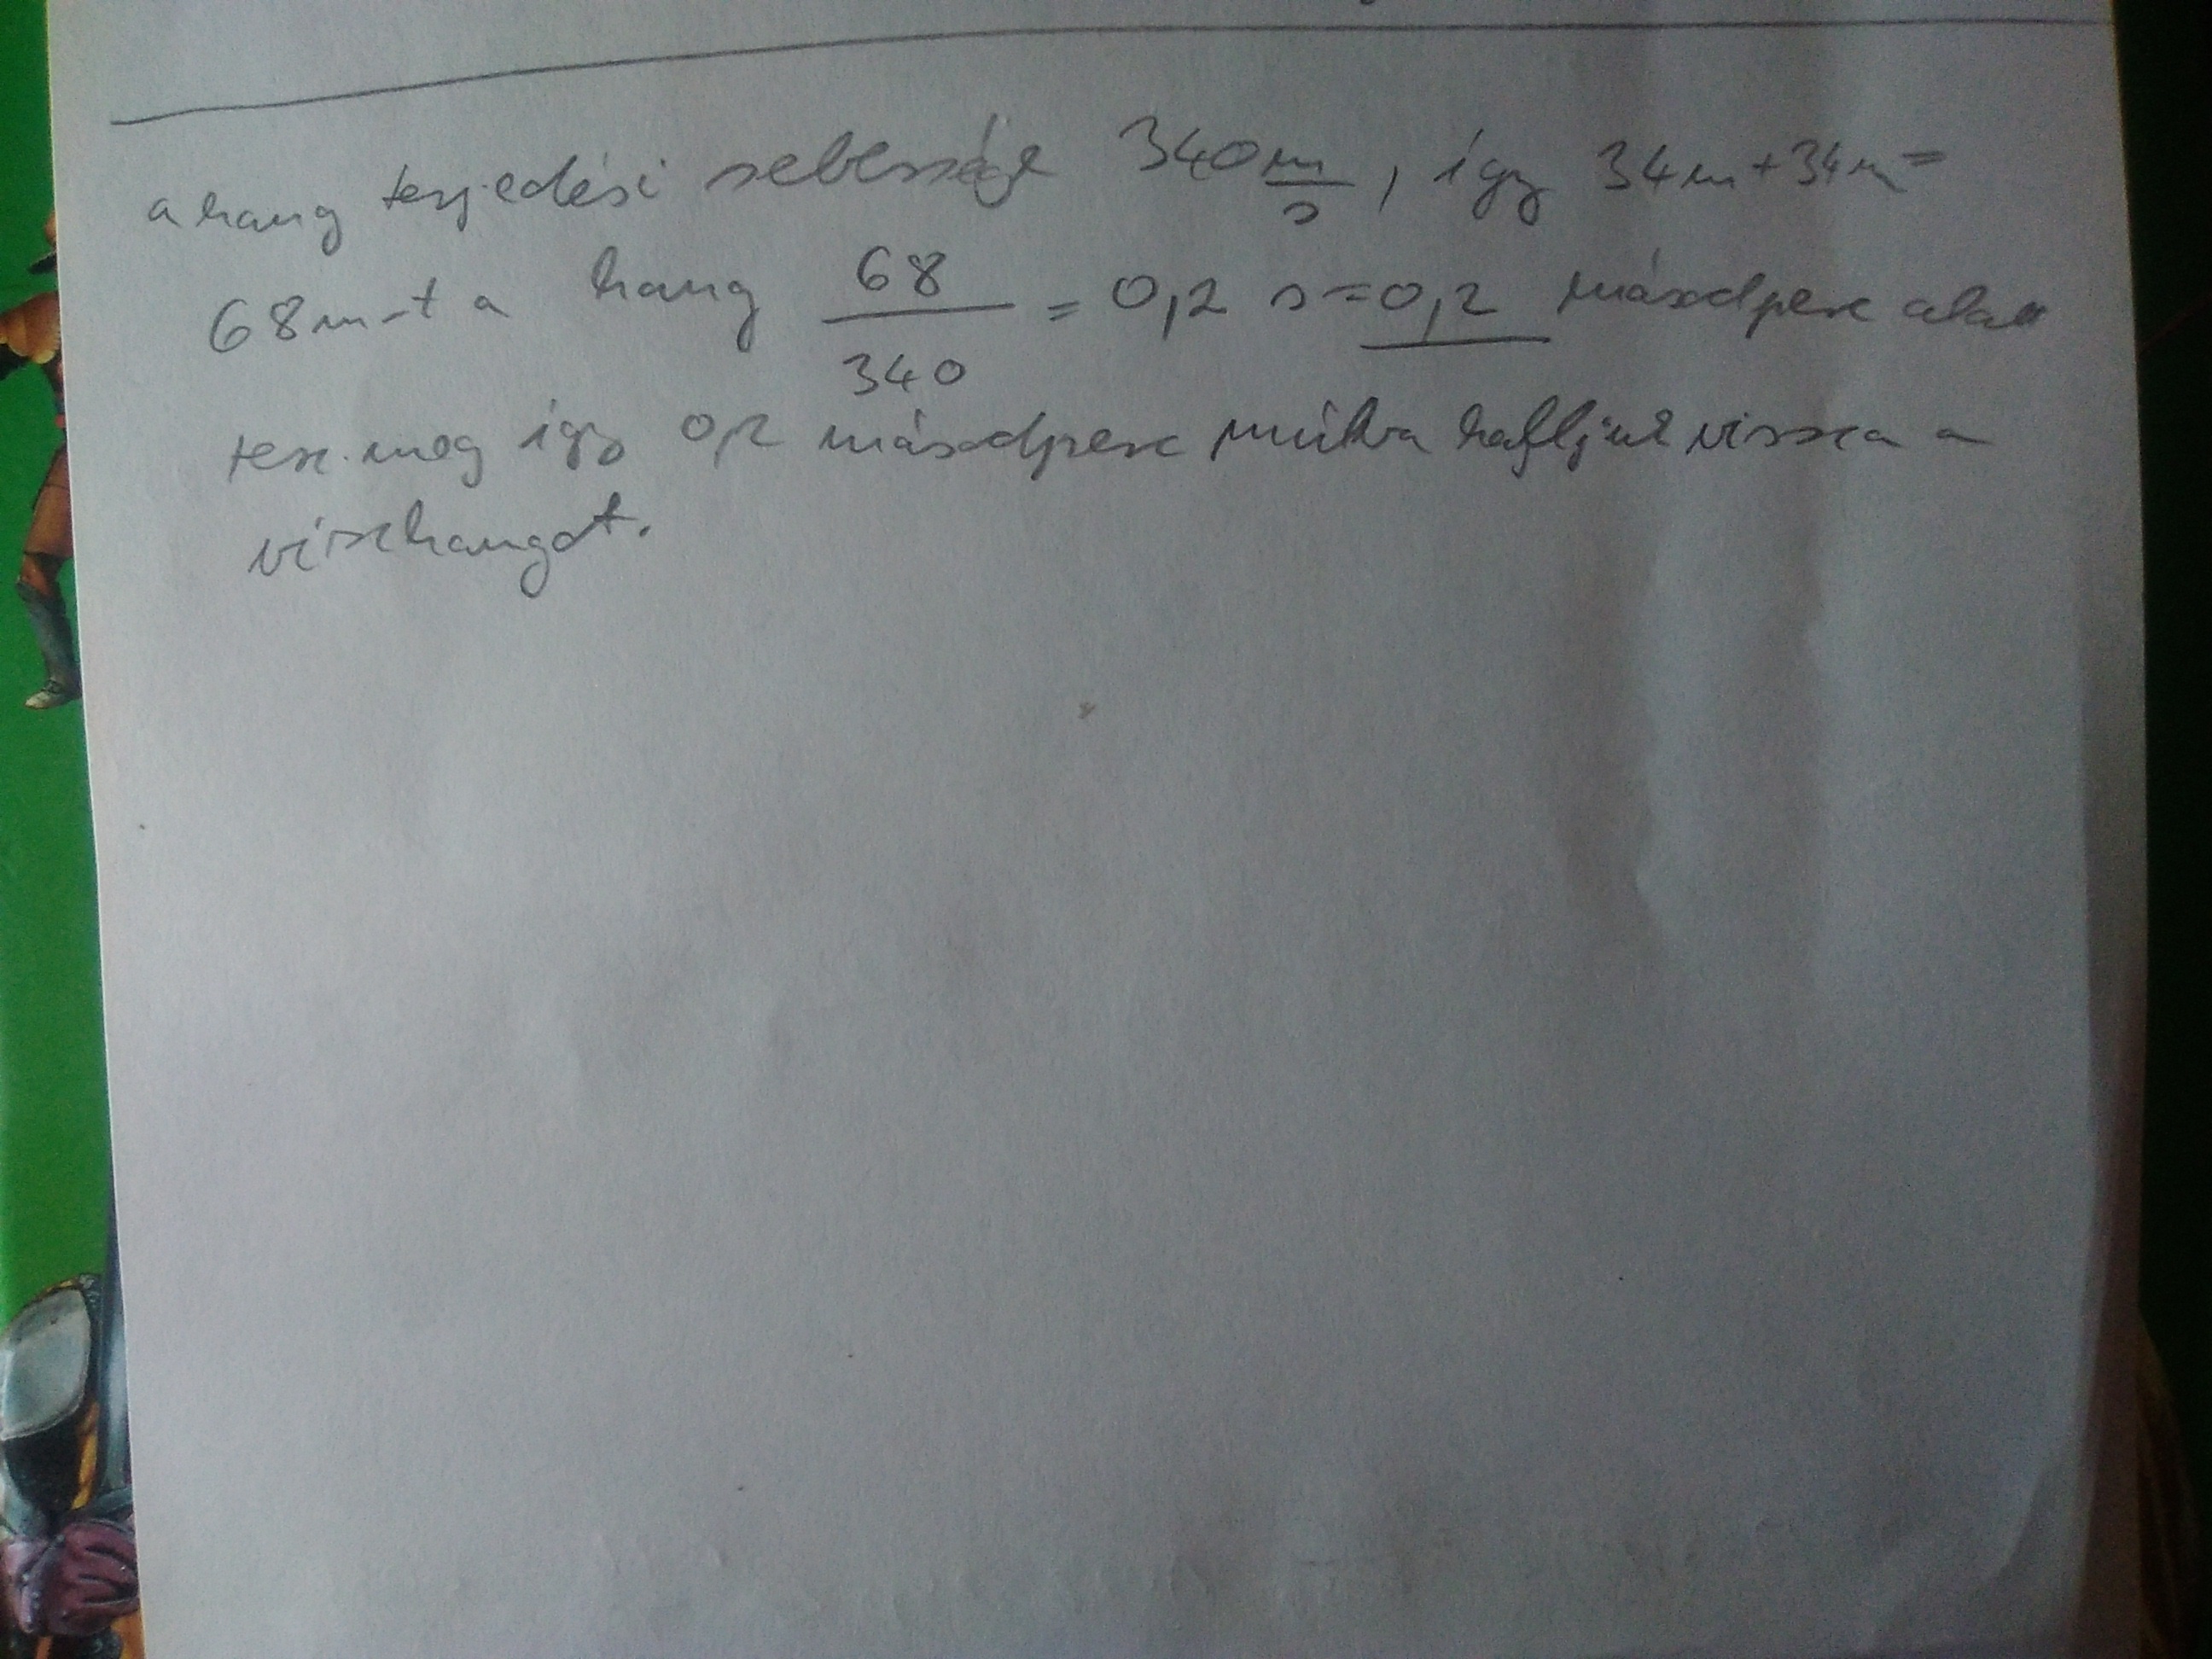 a hang terjedési sebessége 340 m/s, így 34m+34m=
68m-t a hang 68/340 = 0,2 s=0,2 másodperc alatt
tesz meg így 0,2 másodperc múlva halljuk vissza a
visszhangot.